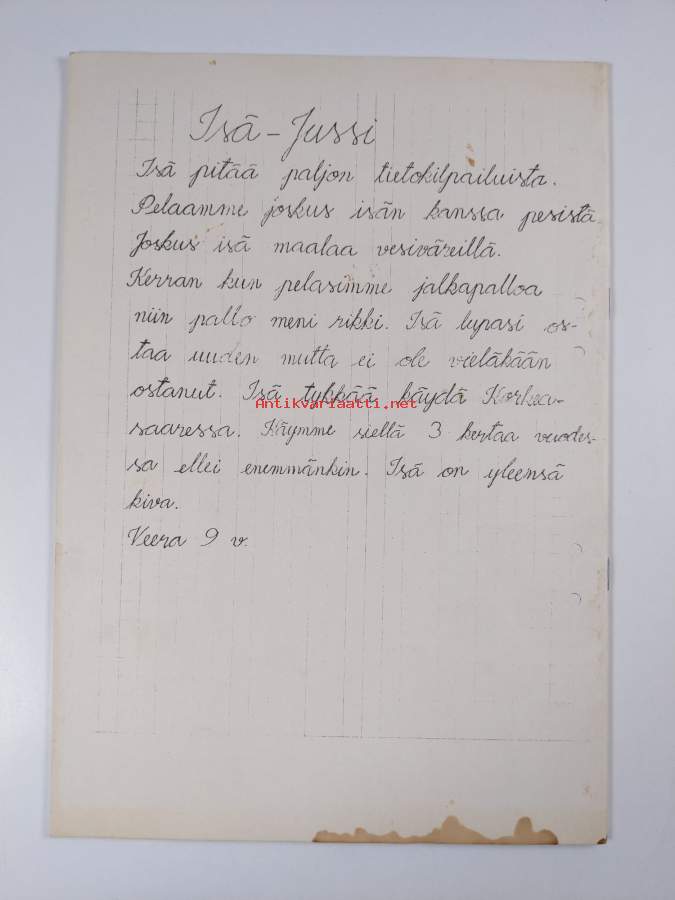 Isä - Jussi
Isä pitää paljon tietokilpailuista.
Pelaamme joskus isän kanssa pesistä
Joskus isä maalaa vesiväreillä.
Kerran kun pelasimme jalkapalloa
niin pallo meni rikki. Isä lupasi os-
taa uuden mutta ei ole vieläkään
ostanut. Isä tykkää käydä Korkea-
Antikvariaatti.net
saaressa. Käymme siellä 3 kertaa vuodes-
sa ellei enemmänkin. Isä on yleensä
kiva.
Veera 9 v.